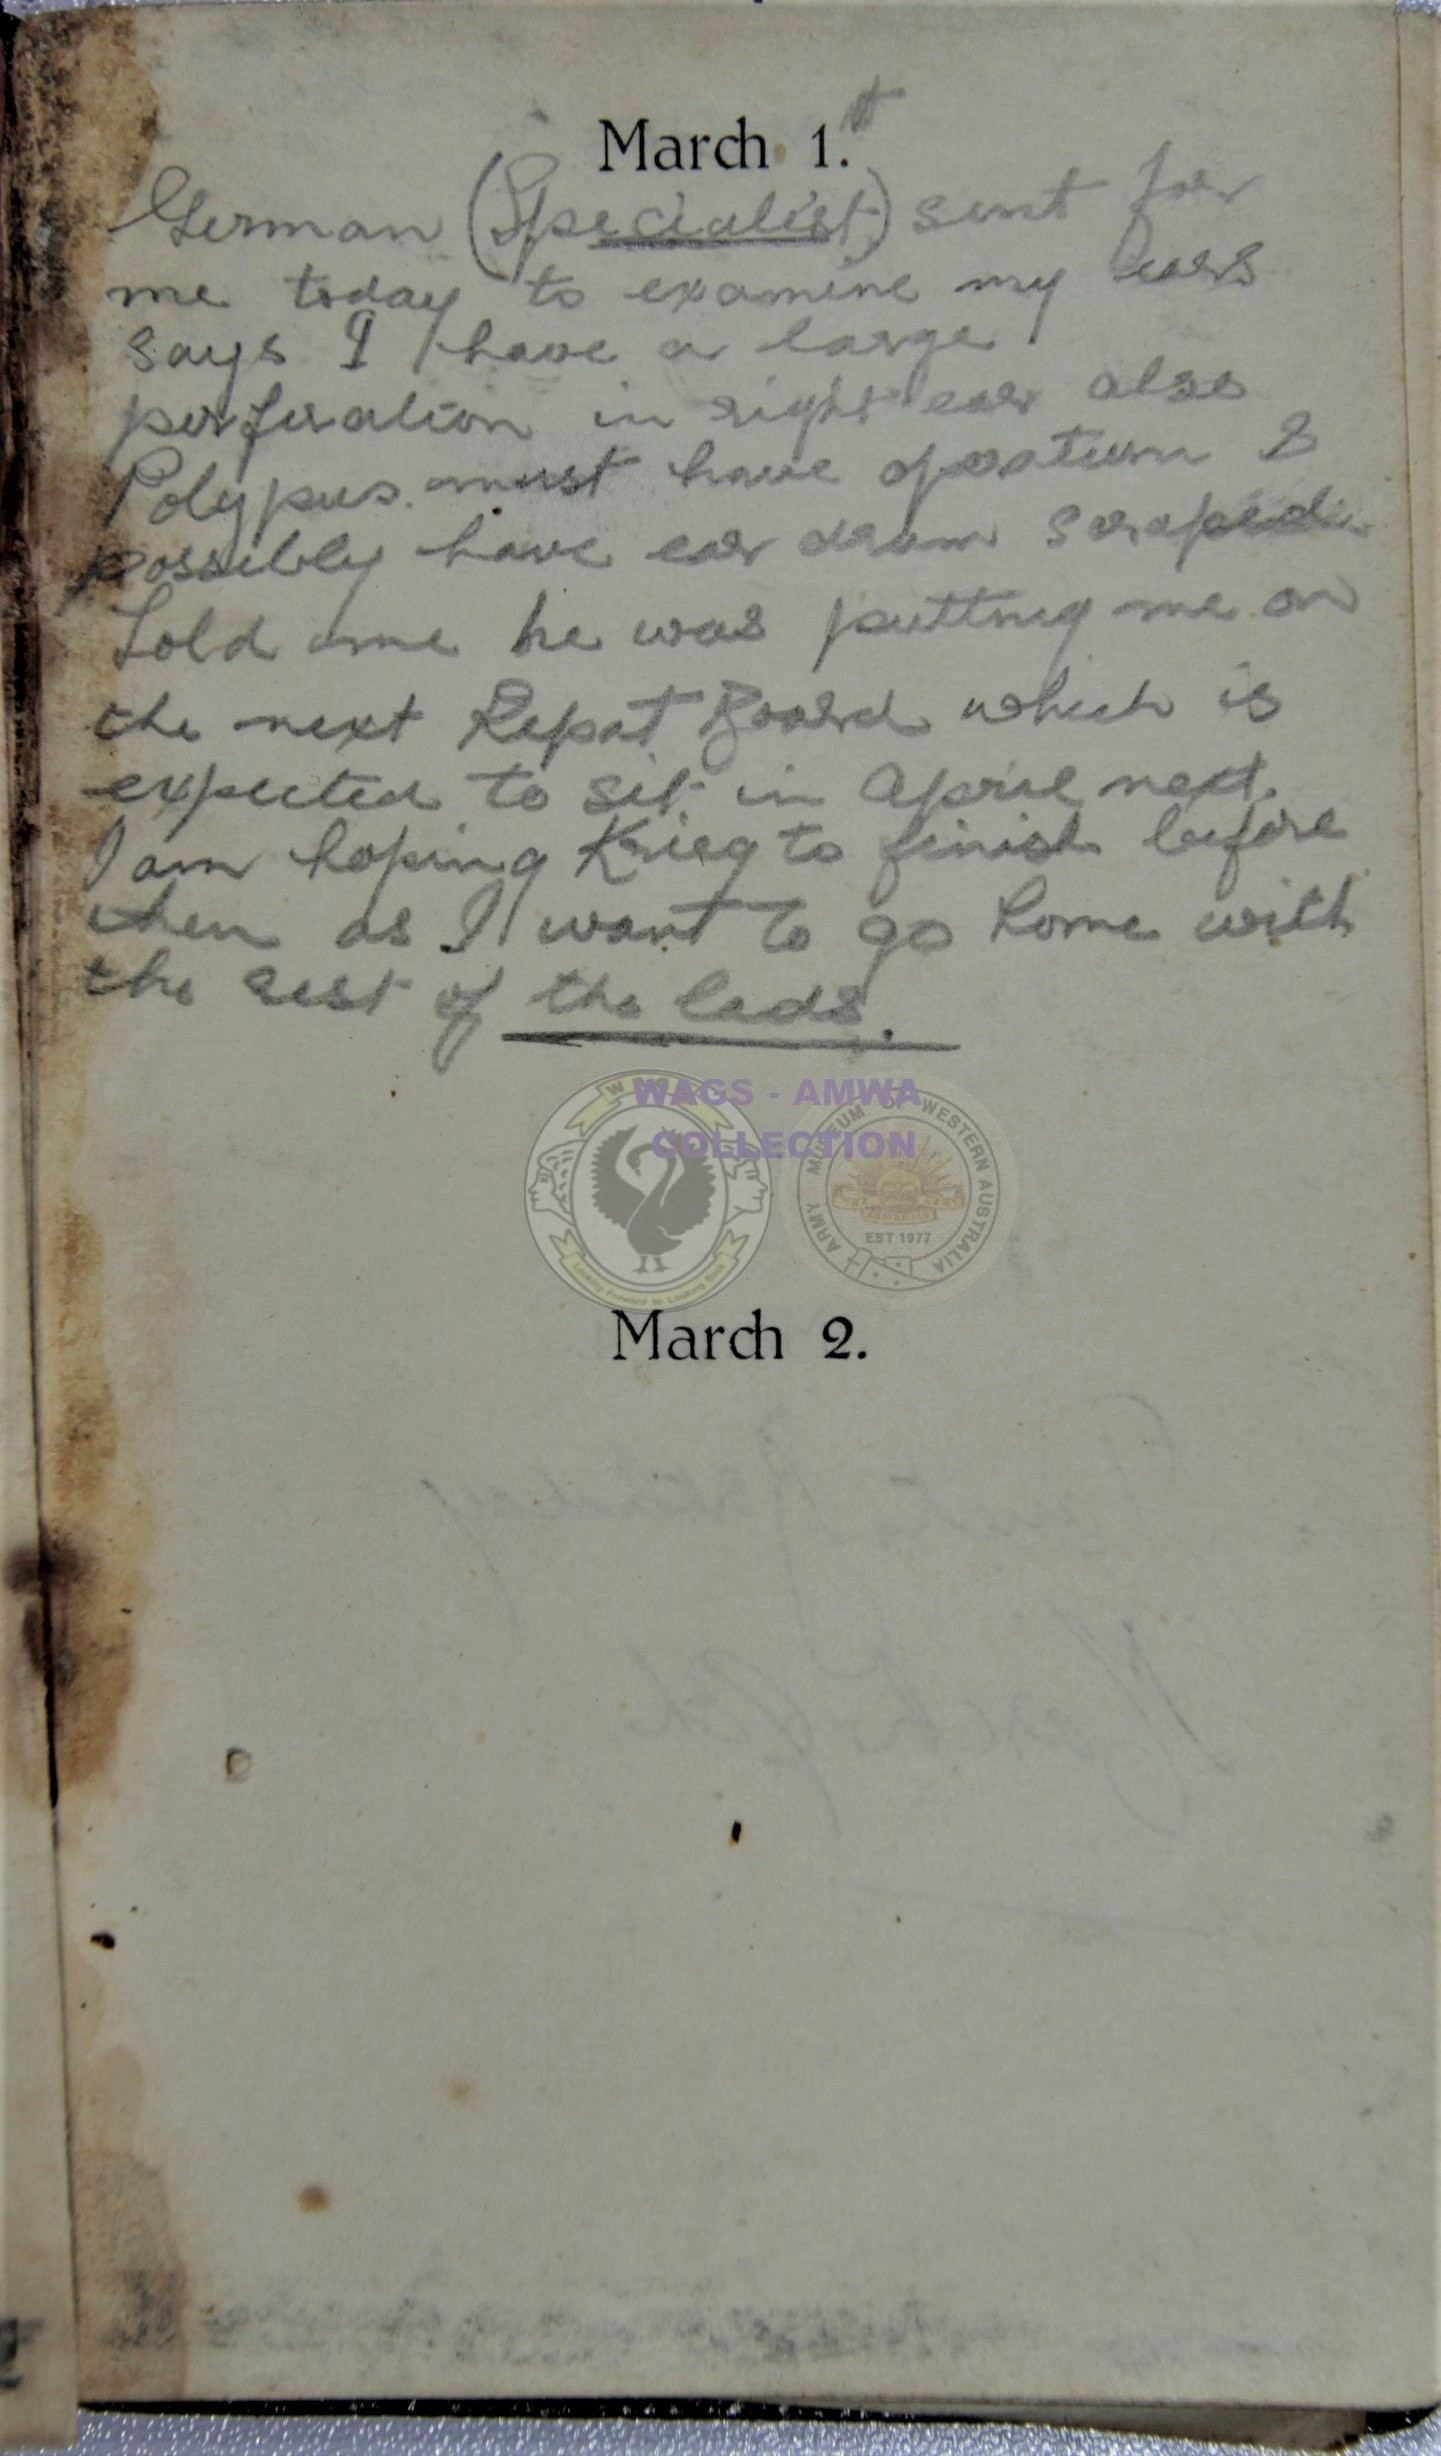 March 1.st
German (Specialist) sent for
me today to examine my ears
says I have a large
perforation in right ear also
Polypus. must have operation &
possibly have ear drum scraped.
Told me he was putting me on
the next Repat Board which is
expected to sit in April next.
I am hoping Krieg to finish before
then as I want to go home with
the rest of the lads.
WAGS - AMWA
COLLECTION
ARMY MUSEUM OF WESTERN AUSTRALIA
EST 1977
Looking Forward to Looking Back
March 2.